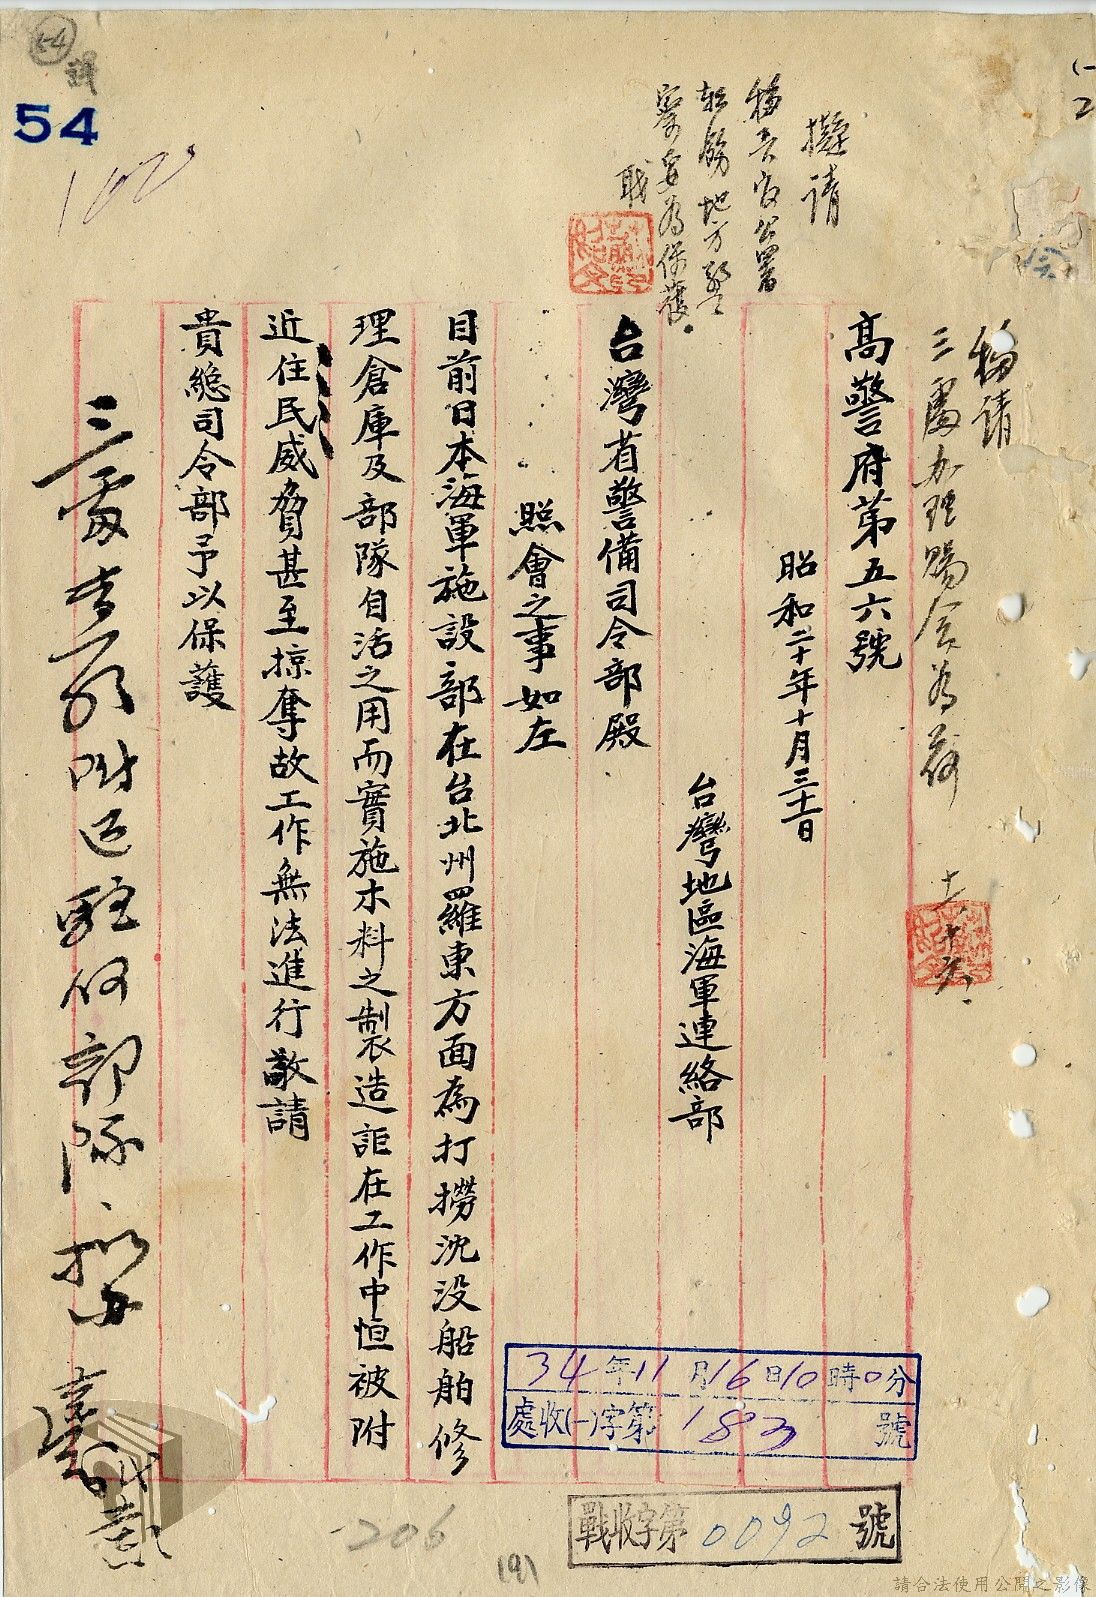 擬請
移長官公署
轉飭地方警
察妥為保護
職
移請
三處辦理賜會為荷
十一、十六、
高警府第五六號
昭和二十年十月三十一日
台灣地區海軍連絡部
台灣省警備司令部殿
照會之事如左
目前日本海軍施設部在台北州羅東方面為打撈沈没船舶修
理倉庫及部隊自活之用而實施木料之製造詎在工作中恒被附
近住民威脅甚至掠奪故工作無法進行敬請
貴總司令部予以保護
三處
附近駐何部隊
34年11月16日10時0分
處收(一)字第183號
戰收字第0092號
54
54
206
191
請合法使用公開之影像